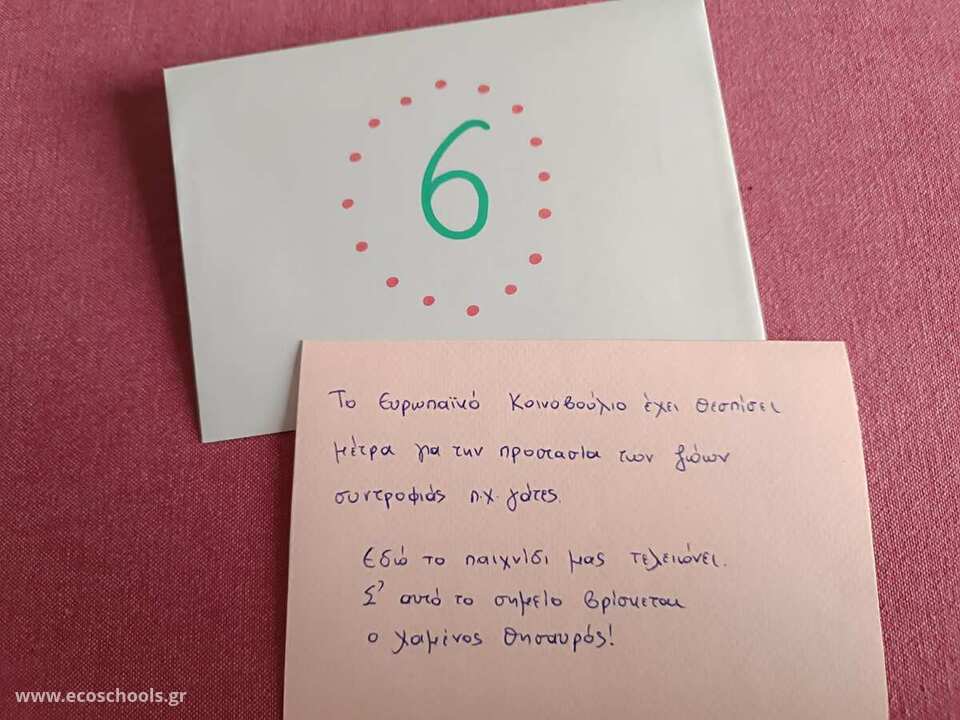 6
Το Ευρωπαϊκό Κοινοβούλιο έχει θεσπίσει
μέτρα για την προστασία των ζώων
συντροφιάς π.χ. γάτες.
Εδώ το παιχνίδι μας τελειώνει.
Σ' αυτό το σημείο βρίσκεται
ο χαμένος θησαυρός!
www.ecoschools.gr